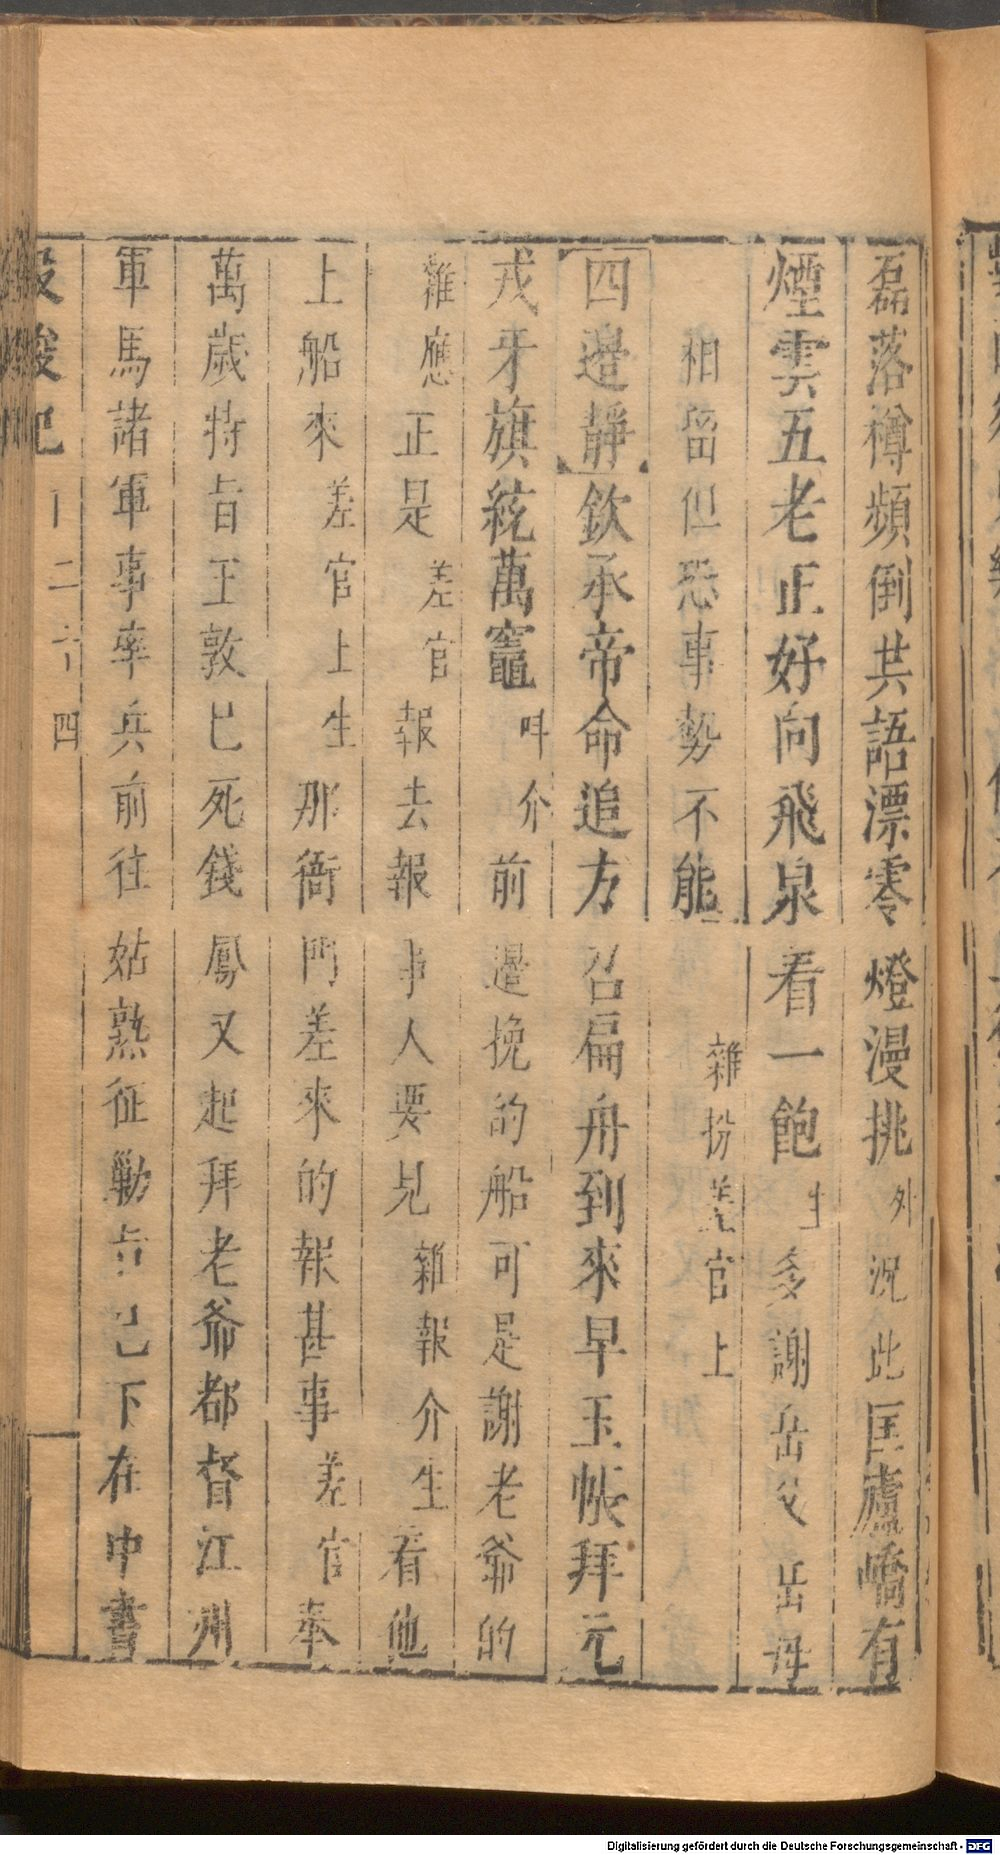 磊落樽頻倒共語漂零燈漫挑外況此匡廬嶠有
煙雲五老正好向飛泉看一飽生多謝岳父岳母
相留但恐事勢不能雜扮差官上
四邉靜欽承帝命追方召扁舟到來早玉帳拜元
戎牙旗統萬竈叫介前邉挽的船可是謝老爺的
雜應正是差官報去報事人要見雜報介生看他
上船來差官上生那衙門差來的報甚事差官奉
萬歲特旨王敦已死錢鳳又起拜老爺都督江州
軍馬諸軍事率兵前往姑熟征勦旨已下在中書
投梭記
二十四
Digitalisierung gefördert durch die Deutsche Forschungsgemeinschaft - DFG